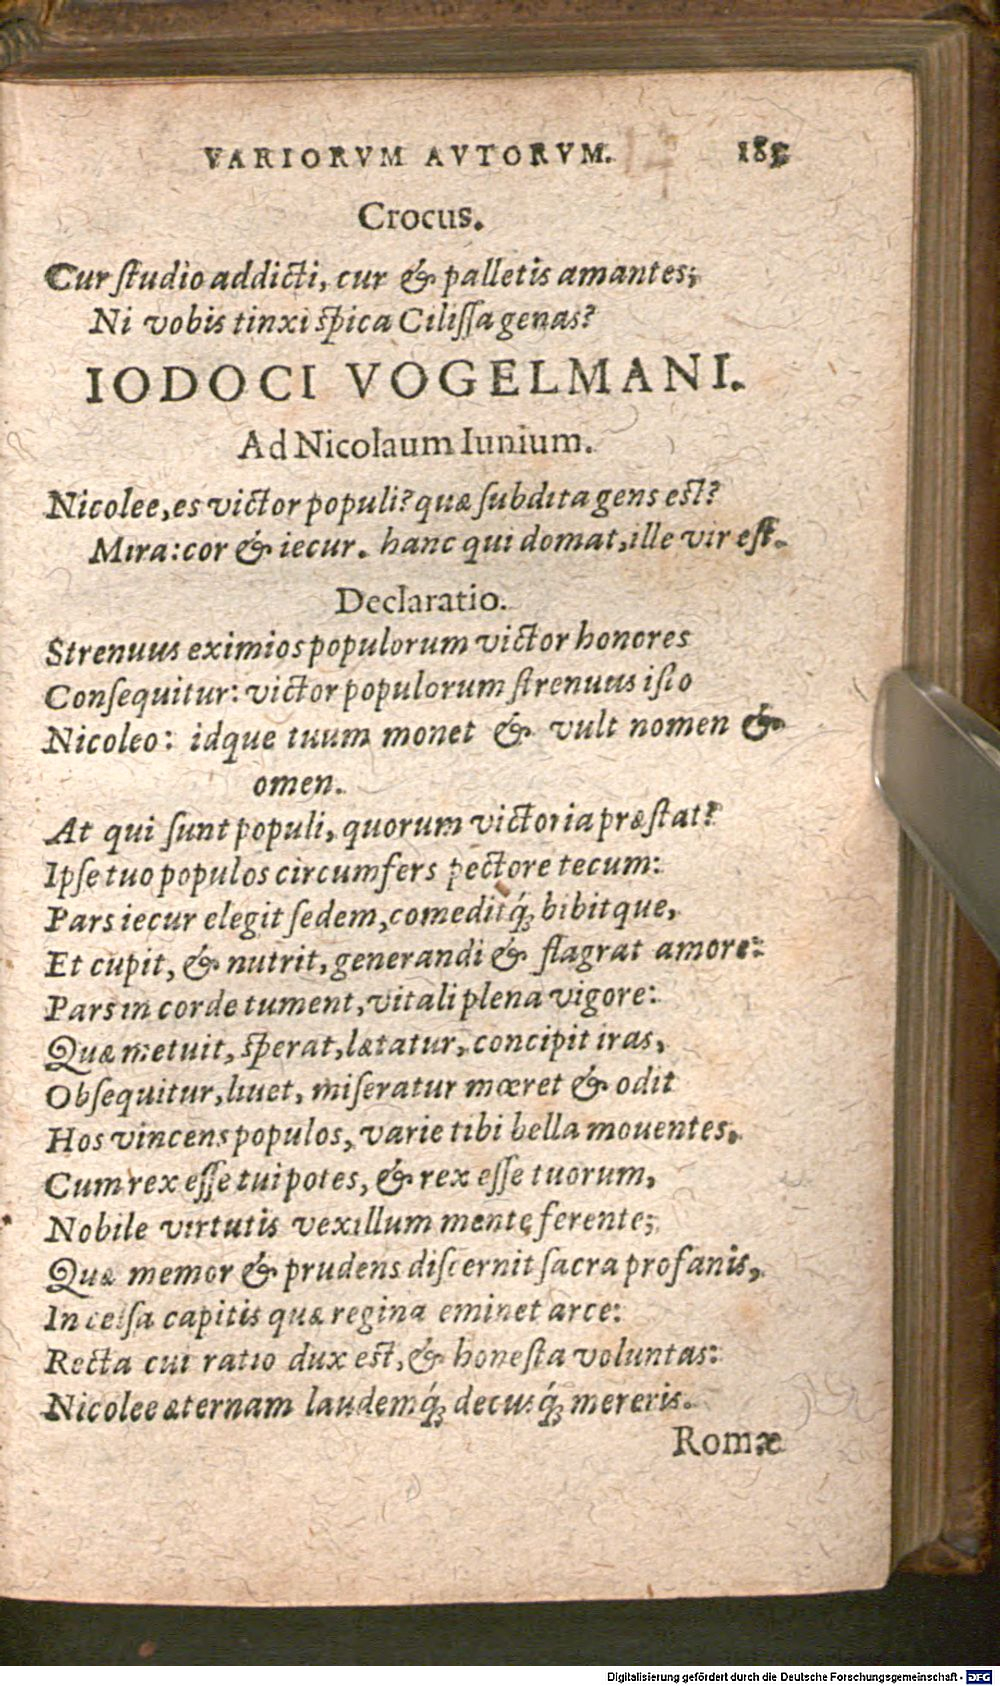 VARIORVM AVTORVM. 185
Crocus.
Cur ſtudio addicti, cur & palletis amantes;
Ni vobis tinxi ſpica Ciliſſa genas?
IODOCI VOGELMANI.
Ad Nicolaum Iunium.
Nicolee, es victor populi? quæ ſubdita gens eſt?
Mira: cor & iecur. hanc qui domat, ille vir eſt.
Declaratio.
Strenuus eximios populorum victor honores
Conſequitur: victor populorum ſtrenuus iſto
Nicoleo: idque tuum monet & vult nomen &
omen.
At qui ſunt populi, quorum victoria præſtat?
Ipſe tuo populos circumfers pectore tecum:
Pars iecur elegit ſedem, comeditq́; bibitque,
Et cupit, & nutrit, generandi & flagrat amore:
Pars in corde tument, vitali plena vigore:
Quæ metuit, ſperat, lætatur, concipit iras,
Obſequitur, liuet, miſeratur mœret & odit
Hos vincens populos, varie tibi bella mouentes,
Cum rex eſſe tui potes, & rex eſſe tuorum,
Nobile virtutis vexillum mente ferente;
Quæ memor & prudens diſcernit ſacra profanis,
In celſa capitis quæ regina eminet arce:
Recta cui ratio dux eſt, & honeſta voluntas:
Nicolee æternam laudemq́; decusq́; mereris.
Romæ
Digitalisierung gefördert durch die Deutsche Forschungsgemeinschaft - DFG